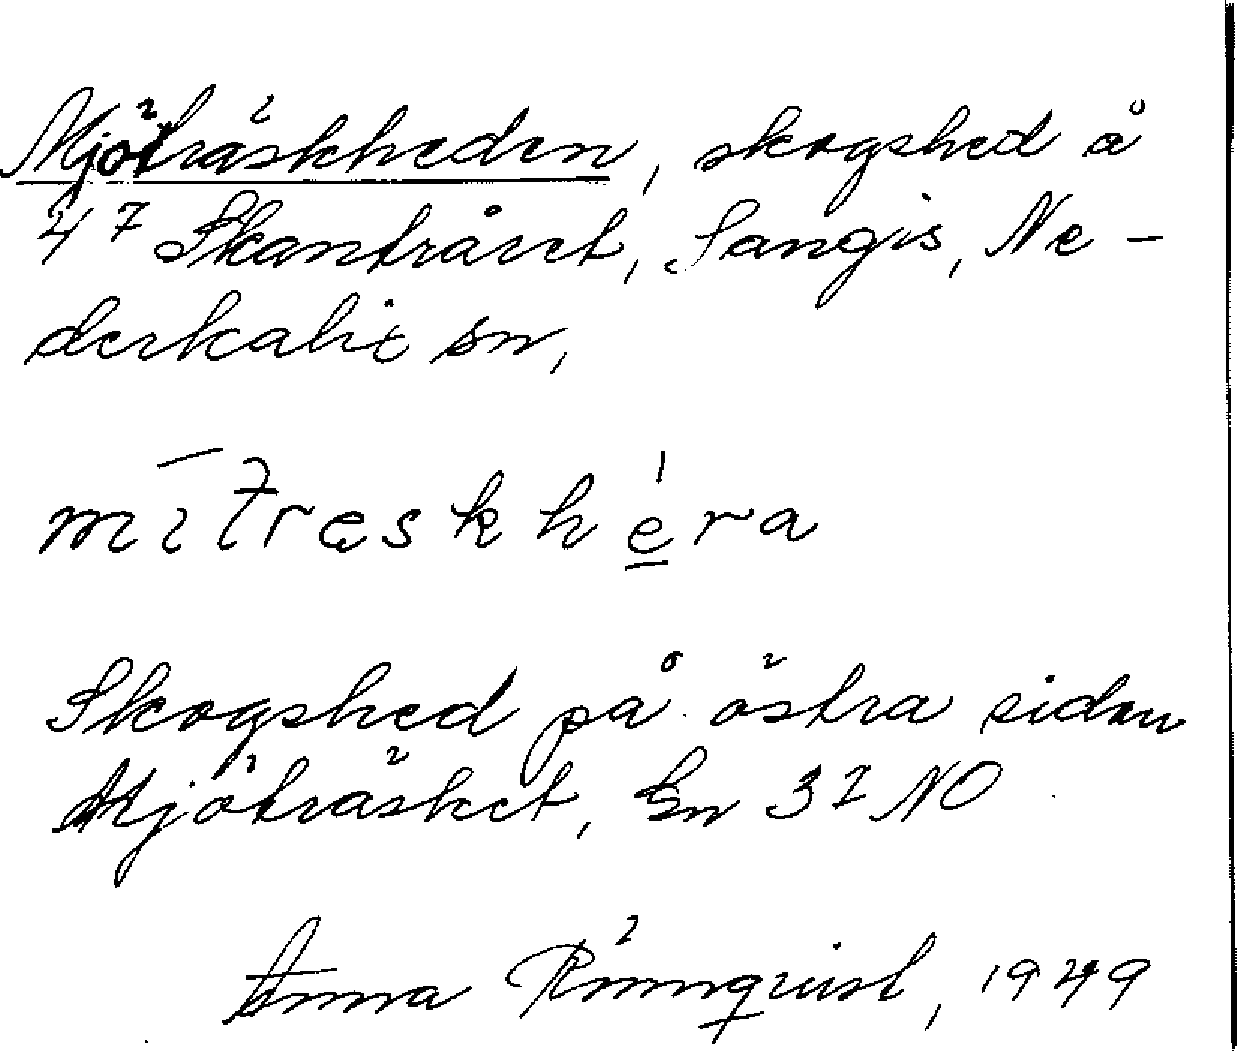 Mjöträskheden, skogshed å
47 Skanträvet, Sangis, Ne-
derkalix sn,
mītræskhéra
Skogshed på östra sidan
Mjöträsket, Gn 32 NO
Anna Rönnquist, 1949